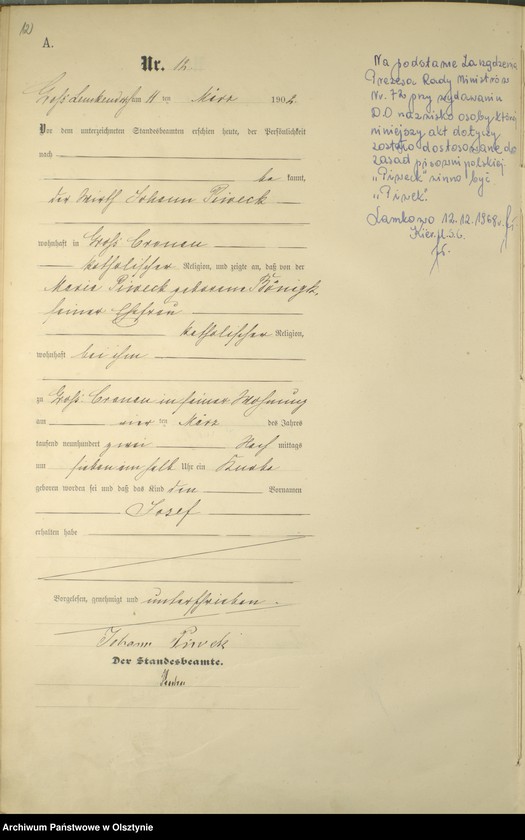 12)
A.
Nr. 12
Groß Lemkendorf am 11 ten März 1902.
Vor dem unterzeichneten Standesbeamten erschien heute, der Persönlichkeit
nach
be kannt,
der Wirth Johann Piweck
wohnhaft in Groß Cronau
katholischer Religion, und zeigte an, daß von der
Maria Piweck geborene Bönigk,
seiner Ehefrau
katholischer Religion,
wohnhaft bei ihm
zu Groß Cronau in seiner Wohnung
am vier ten März des Jahres
tausend neunhundert zwei Nach mittags
um sieben ein halb Uhr ein Knabe
geboren worden sei und daß das Kind den Vornamen
Josef
erhalten habe
Vorgelesen, genehmigt und unterschrieben.
Johann Piweck
Der Standesbeamte.
Na podstawie Zarządzenia
Prezesa Rady Ministrów
Nr. 72 przy wydawaniu
D.O nazwisko osoby której
niniejszy akt dotyczy
zostało dostosowane do
zasad pisowni polskiej.
"Piweck" winno być
"Piwek".
Lamkowo 12.12.1968r.
Kier. U.S.C.
Archiwum Państwowe w Olsztynie